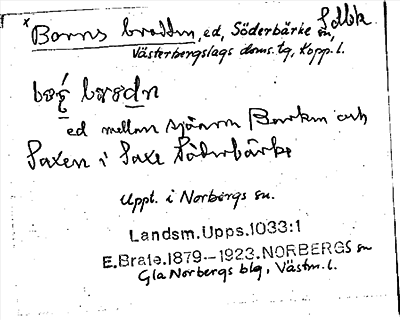 Borns bradden, ed, Söderbärke sn, Sdbk
Västerbergslags doms. tg, Kopp. l.
ed mellan sjöarna Barken och
Saxen i Saxe Söderbärke
Uppt. i Norbergs sn.
Landsm. Upps. 1033:1
E. Brate. 1879-1923. NORBERGS sn
Gla Norbergs blg, Västm. l.